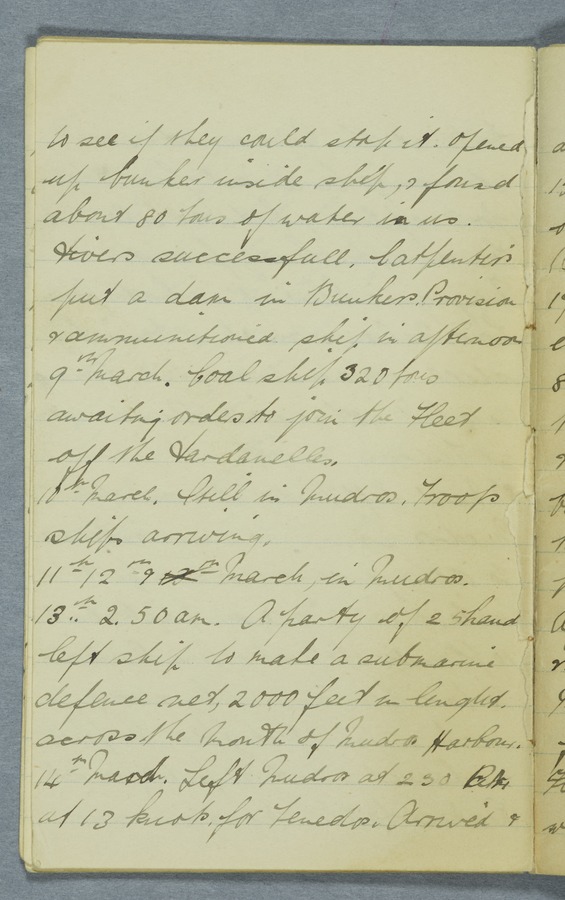 to see if they could stop it. Opened
up bunker inside ship, & found
about 80 tons of water in us.
Divers successfull. Carpenters
put a dam in Bunkers. Provision
& ammunitioned ship in afternoon
9th March. Coal ship 320 tons
awaiting orders to join the Fleet
off the Dardanelles.
10th March. Still in Mudros. Troop
ships arriving.
11th 12th March, in Mudros.
13th. 2.50 am. A party of 25 hand
left ship to make a submarine
defence net, 2000 feet in lenght.
across the mouth of Mudros Harbour.
14th March. Left Mudros at 2 30
at 13 knots. for Tenedos. Arrived &